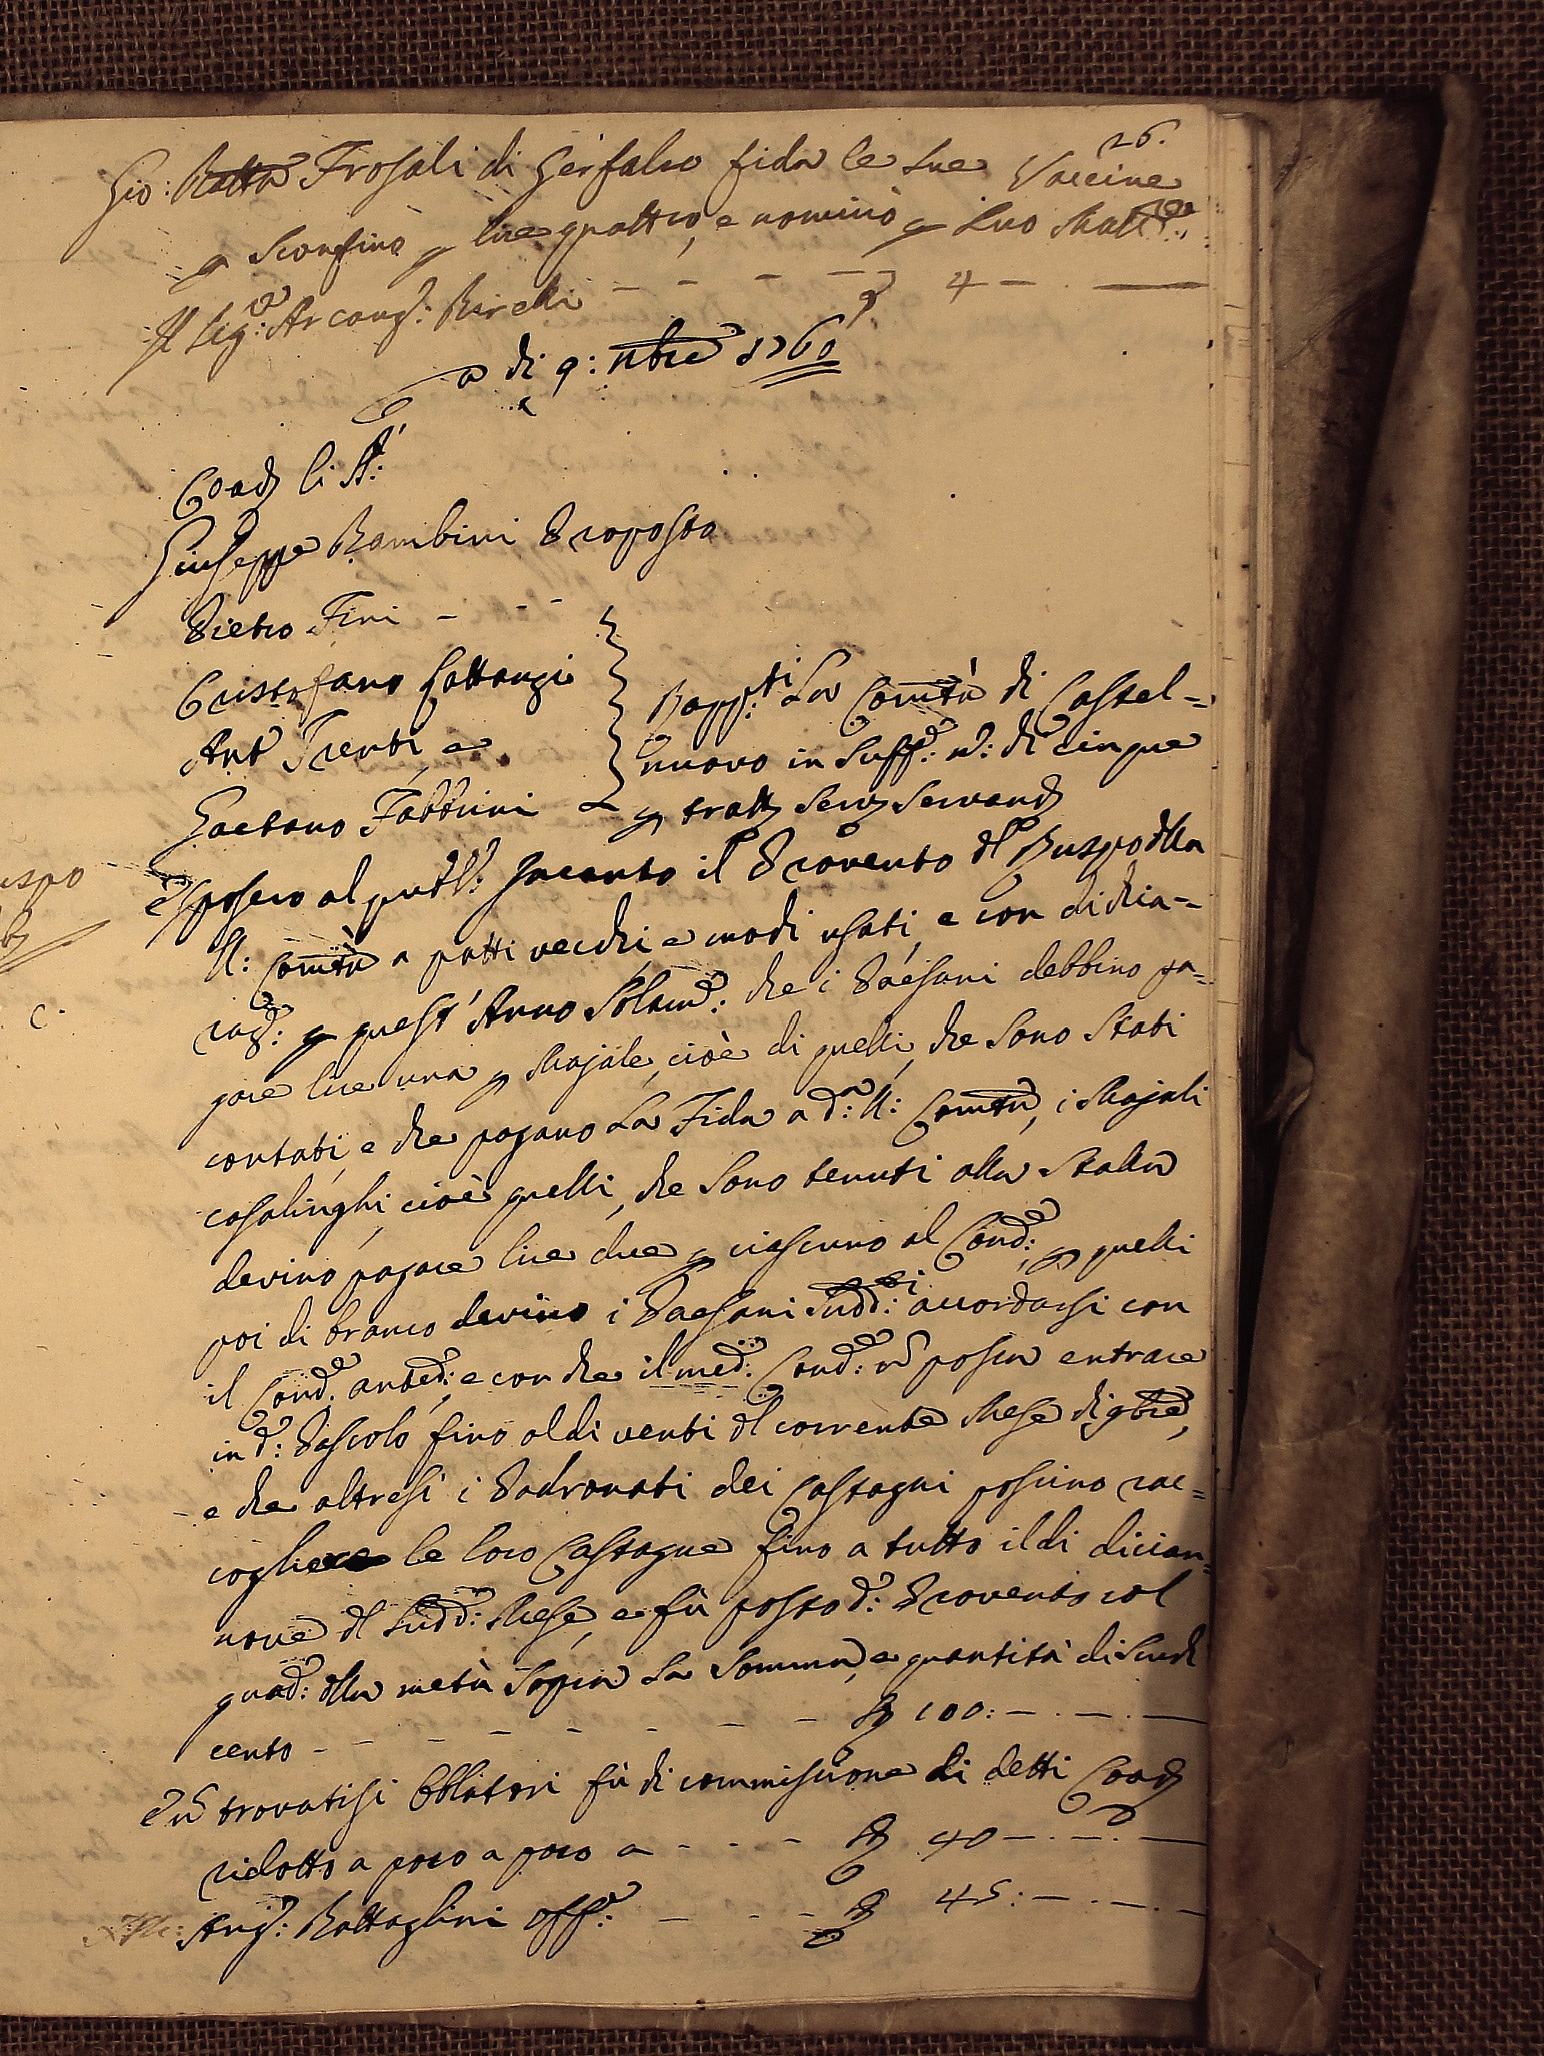 26.
Gio: Batta Frosali di Gerfalco fida le sue Vaccine
p sconfino p lire quattro, e nominò p suo Malle
Il Sig.e Arcang: Birelli - - - - 4 -
a di 9: nbre 1760
Coad li SS:
Giuseppe Bambini Proposto
Pietro Fini - - -
Cristofano Gattongi
Ant.o Trenti e
Gaetano Fabbrini
Rapp:ti La Comtà di Castel=
nuovo in suff: n: di cinque
p tratt serv servand
uspo
Esposero al pubb: Incanto il Provento dl Ruspo dlla
M: Comtà a patti vecchi e modi usati, e con dichia=
c.
raz: p quest' Anno solam: che i Paesani debbino pa=
gare lire una p Majale, cioè di quelli, che sono stati
contati, e che pagano La Fida a d:a M: Comtà, i Majali
casalinghi, cioè quelli, che sono tenuti alla stalla
devino pagare lire due p ciascuno al Cond:e, p quelli
poi di branco devino i Paesani sudd:i accordarsi con
il Cond.e anted:, e con che il med: Cond:e n possa entrare
in d: Pascolo fino al di venti dl corrente Mese di 9bre,
e che altresì i Padronati dei Castagni possino rac=
cogliere le loro Castagne fino a tutto il di dician=
nove dl sudd: Mese, e fù posto d: Provento col
quad: dlla metà sopra La somma, e quantità di scudi
cento - - - - - - - - 100: - . - . -
E n trovatisi Oblatori fù di commissione di detti Coad
ridotto a poco a poco a - - - 40 - . - . -
Ang: Battaglini off: - - - 45: - . - . -